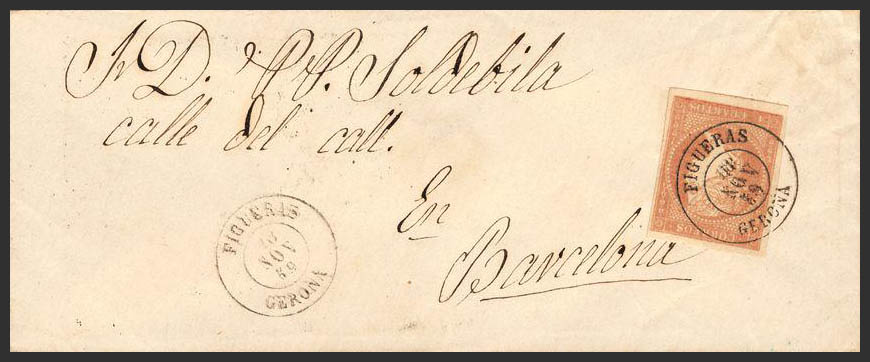 Sr D. P. P. Soldebila
calle del call.
En
Barcelona
FIGUERAS
NOV
59
GERONA
CUARTOS
FIGUERAS
NOV
59
GERONA